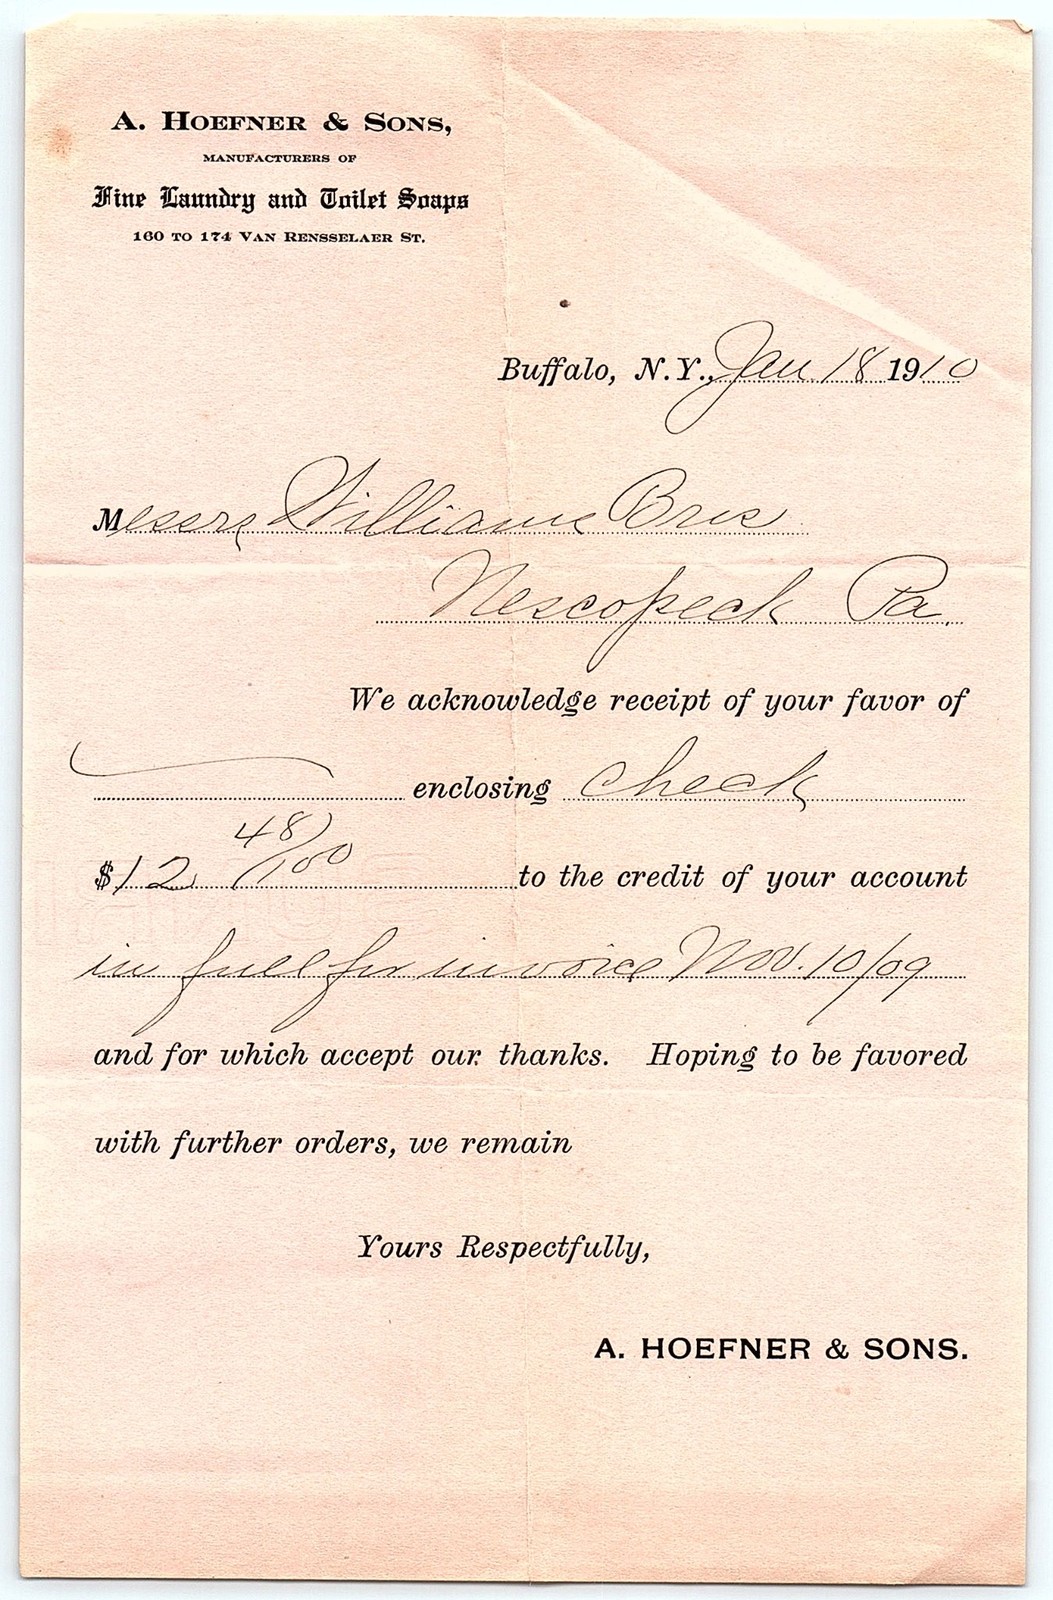 A. HOEFNER & SONS,
MANUFACTURERS OF
Fine Laundry and Toilet Soaps
160 TO 174 VAN RENSSELAER ST.
Buffalo, N.Y., Jan 18 1910
Messrs Williams Bros
Nescopeck Pa.
We acknowledge receipt of your favor of
enclosing check
$12 48/100 to the credit of your account
in full for invoice Nov. 10/09
and for which accept our thanks. Hoping to be favored
with further orders, we remain
Yours Respectfully,
A. HOEFNER & SONS.